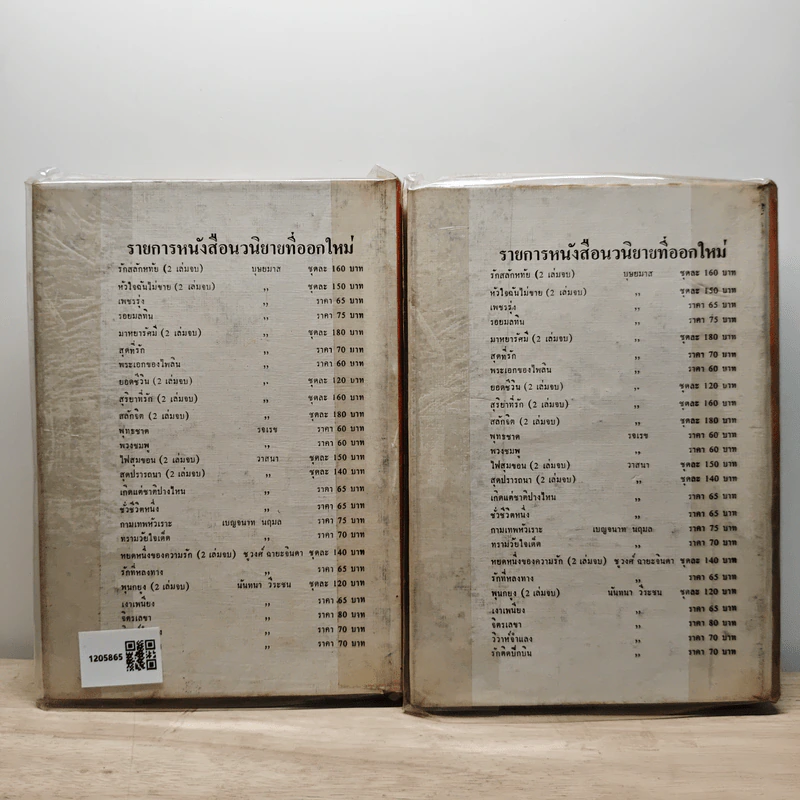 รายการหนังสือนวนิยายที่ออกใหม่
รักสลักหทัย (2 เล่มจบ) บุษยมาส ชุดละ 160 บาท
หัวใจฉันไม่ขาย (2 เล่มจบ) ,, ชุดละ 150 บาท
เพชรรุ้ง ,, ราคา 65 บาท
รอยมลทิน ,, ราคา 75 บาท
มาหยารัศมี (2 เล่มจบ) ,, ชุดละ 180 บาท
สุดที่รัก ,, ราคา 70 บาท
พระเอกของไพลิน ,, ราคา 60 บาท
ยอดชีวิน (2 เล่มจบ) ,, ชุดละ 120 บาท
สุริยาที่รัก (2 เล่มจบ) ,, ชุดละ 160 บาท
สลักจิต (2 เล่มจบ) ,, ชุดละ 180 บาท
พุทธชาด รจเรข ราคา 60 บาท
พวงชมพู ,, ราคา 60 บาท
ไฟสุมขอน (2 เล่มจบ) วาสนา ชุดละ 150 บาท
สุดปรารถนา (2 เล่มจบ) ,, ชุดละ 140 บาท
เกิดแต่ชาติปางไหน ,, ราคา 65 บาท
ชั่วชีวิตหนึ่ง ,, ราคา 65 บาท
กามเทพหัวเราะ เบญจนาท นฤมล ราคา 75 บาท
ทรามวัยใจเด็ด ,, ราคา 70 บาท
หยดหนึ่งของความรัก (2 เล่มจบ) ชูวงศ์ ฉายะจินดา ชุดละ 140 บาท
รักที่หลงทาง ,, ราคา 65 บาท
พุนกยูง (2 เล่มจบ) นันทนา วีระชน ชุดละ 120 บาท
เงาเพนียง ,, ราคา 65 บาท
จิตรเลขา ,, ราคา 80 บาท
,, ราคา 70 บาท
,, ราคา 70 บาท
1205865
รายการหนังสือนวนิยายที่ออกใหม่
รักสลักหทัย (2 เล่มจบ) บุษยมาส ชุดละ 160 บาท
หัวใจฉันไม่ขาย (2 เล่มจบ) ,, ชุดละ 150 บาท
เพชรรุ้ง ,, ราคา 65 บาท
รอยมลทิน ,, ราคา 75 บาท
มาหยารัศมี (2 เล่มจบ) ,, ชุดละ 180 บาท
สุดที่รัก ,, ราคา 70 บาท
พระเอกของไพลิน ,, ราคา 60 บาท
ยอดชีวิน (2 เล่มจบ) ,, ชุดละ 120 บาท
สุริยาที่รัก (2 เล่มจบ) ,, ชุดละ 160 บาท
สลักจิต (2 เล่มจบ) ,, ชุดละ 180 บาท
พุทธชาด รจเรข ราคา 60 บาท
พวงชมพู ,, ราคา 60 บาท
ไฟสุมขอน (2 เล่มจบ) วาสนา ชุดละ 150 บาท
สุดปรารถนา (2 เล่มจบ) ,, ชุดละ 140 บาท
เกิดแต่ชาติปางไหน ,, ราคา 65 บาท
ชั่วชีวิตหนึ่ง ,, ราคา 65 บาท
กามเทพหัวเราะ เบญจนาท นฤมล ราคา 75 บาท
ทรามวัยใจเด็ด ,, ราคา 70 บาท
หยดหนึ่งของความรัก (2 เล่มจบ) ชูวงศ์ ฉายะจินดา ชุดละ 140 บาท
รักที่หลงทาง ,, ราคา 65 บาท
พุนกยูง (2 เล่มจบ) นันทนา วีระชน ชุดละ 120 บาท
เงาเพนียง ,, ราคา 65 บาท
จิตรเลขา ,, ราคา 80 บาท
วิวาห์จำแลง ,, ราคา 70 บาท
รักติดปีกบิน ,, ราคา 70 บาท